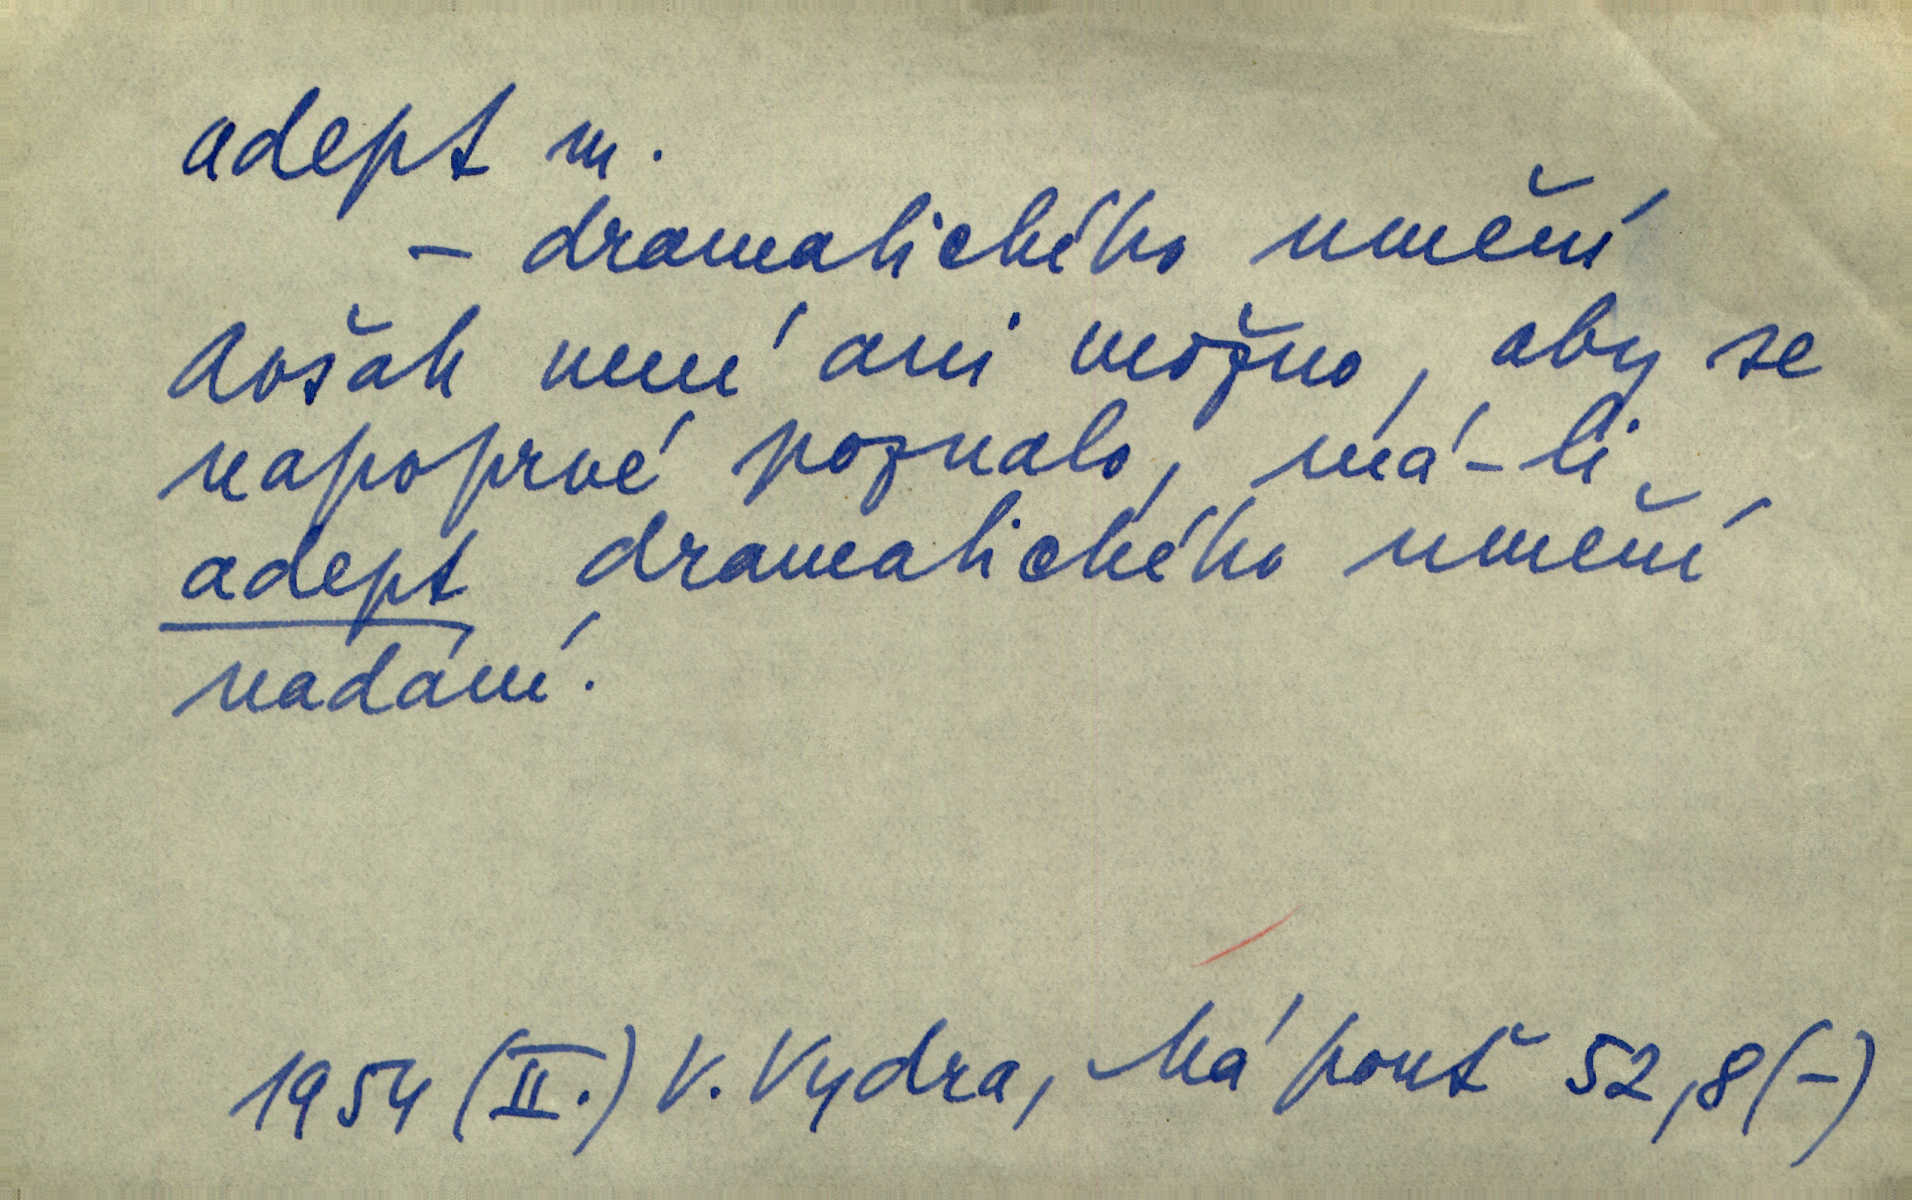 adept m.
– dramatického umění
Avšak není ani možno, aby se
napoprvé poznalo, má-li
adept dramatického umění
nadání.
1954 (II.) V. Vydra, Má pouť 52,8 (–)